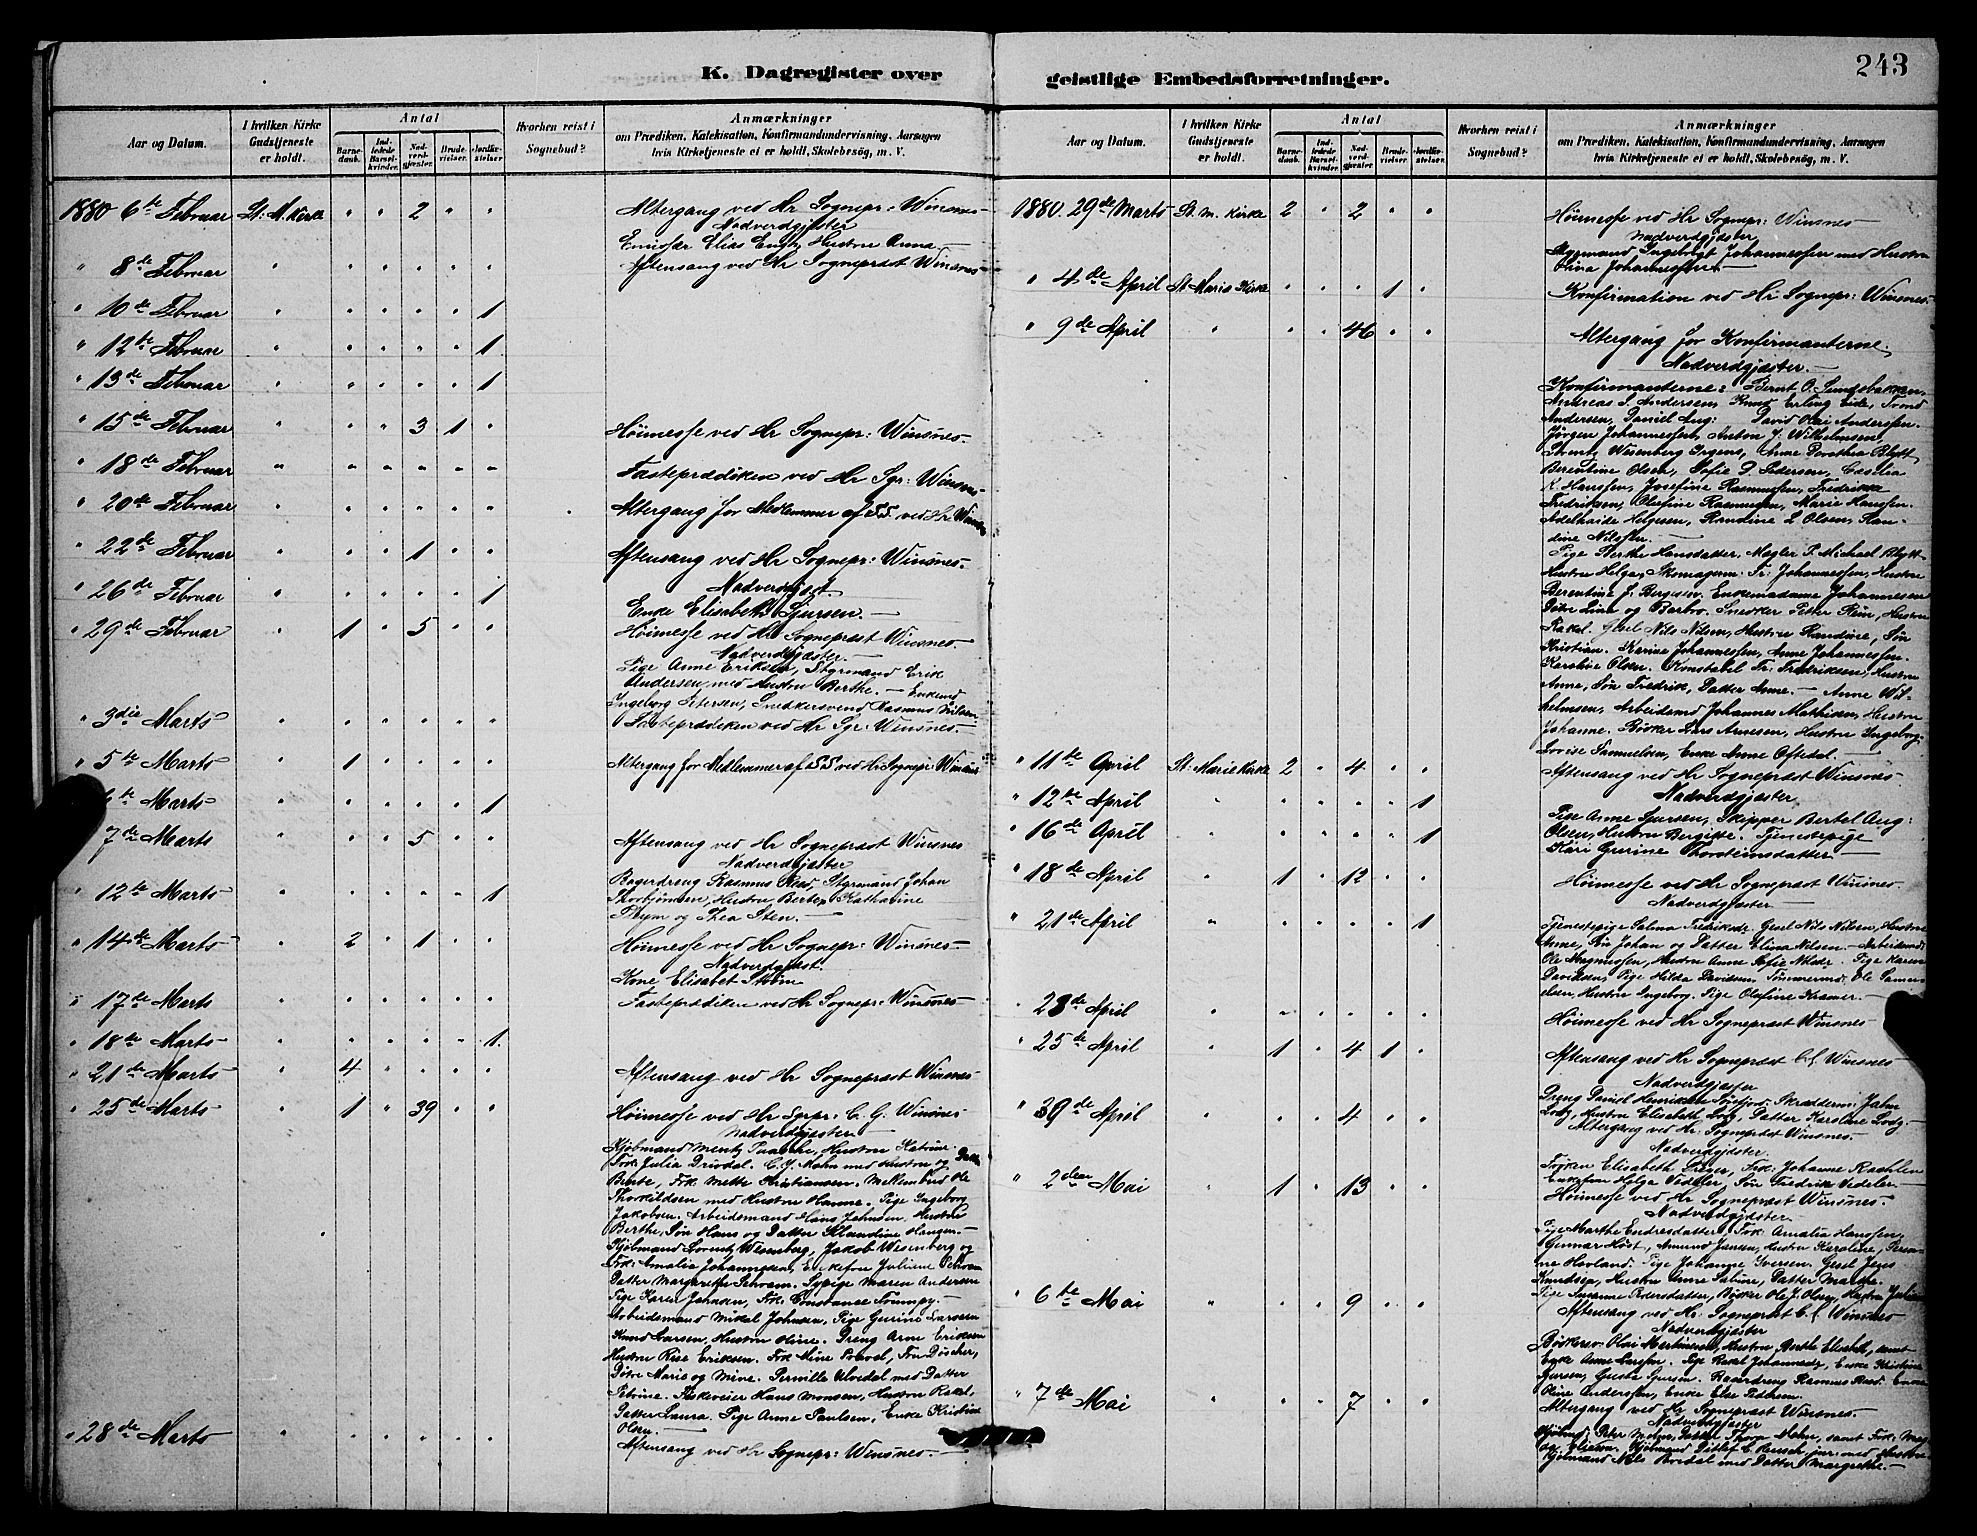 243
K. Dagregister over
geistlige Embedsforretninger.
Aar og Datum.
I hvilken Kirke Gudstjeneste er holdt.
Antal
Barnedaab.
Indledede Barselkvinder.
Nadverdgjæster.
Brudevielser.
Jordfæstelser.
Hvorhen reist i Sognebud?
Anmærkninger
om Prædiken, Katekisation, Konfirmandundervisning, Aarsagen
hvis Kirketjeneste ei er holdt, Skolebesøg, m. V.
1880 6te Februar St. M. Kirke " " 2 " " Altergang ved Hr Sognepr: Winsnes
Nadverdgjæster
Elias Hustru Anna
" 8de Februar " " " " " " Aftensang ved Hr Sogneprest Winsnes
" 10de Februar " " " " " 1
" 12te Februar " " " " " 1
" 13de Februar " " " " " 1
" 15de Februar " " " 3 1 " Høimesse ved Hr Sognepr: Winsnes
" 18de Februar " " " " " " Fasteprædiken ved Hr Sgr: Winsnes
" 20de Februar " " " " " " Altergang for Medlemmer af SS. ved Hr Winsnes
" 22de Februar " " " 1 " " Aftensang ved Hr Sognepr: Winsnes.
Nadverdgjæst
" 26de Februar " " " " " 1
Enke Elisabeth Sjursen.
" 29de Februar " 1 " 5 " " Høimesse ved Hr Sogneprest Winsnes
Nadverdgjæster
Pige Anne Eriksen, Styrmand Erik
Andersen med Hustru Berthe. — Enkemd
Ingeborg Petersen, Snedkersvend Rasmus Nilsen
" 3die Marts " " " " " " Fasteprædiken ved Hr Sgr: Winsnes.
" 5te Marts " 1 " " " " Altergang for Medlemmer af SS ved Hr Sognepr: Winsnes
6te Marts " " " " " 1
7de Marts " " " 5 " " Aftensang ved Hr Sogneprest Winsnes
Nadverdgjæster
Bagerdreng Rasmus Roas, Styrmand Johan
" 12te Marts " " " " " 1
Thorbjørnsen, Hustru Berte, Katharine
og Thea Sten.
" 14de Marts " 2 " 1 " " Høimesse ved Hr Sognepr: Winsnes
Nadverdgjæst.
Kone Elisabet Strøm
" 17de Marts " " " " " " Fasteprædiken ved Hr Sognepr: Winsnes
" 18de Marts " " " " " 1
" 21de Marts " 4 " " " " Aftensang ved Hr Sogneprest Winsnes
" 25de Marts " 1 " 39 " " Høimesse ved Hr Sgrpr: C. G. Winsnes
Nadverdgjæster
Kjøbmand Mentz Hustru Katrine
Frk. Julia Drivdal. C. J. Mohn med Hustru og Datter
Bente, Frk Mette Kristiansen. Ole
Thorkildsen med Hustru Hanne. Pige Ingeborg
Jakobsen. Arbeidsmand Hans Johnsen, Hustru
Berthe, Søn Hans og Datter Klaudine Hansen.
Kjøbmand Lorentz Wesenberg, Jakob Wesenberg og
Frk: Amalia Johannesen, Enkefru Juliane Schram
Datter Margarethe Schram. Sypige Maren Andersen
Pige Karen Johnsen, Frk: Constanse Trumpy.
Arbeidsmand Mikal Johnsen, Pige Gurine Larsen
Knud Larsen, Hustru Oline. Dreng Arne Eriksen
Hustru Rise Eriksen. Frk Mine Fru Døscher,
Døtre Marie og Mine. Pernille med Datter
Petrine. Hans Monsen, Hustru Rakel,
Datter Laura. Pige Anne Paulsen, Enke Kristine
Olsen.
" 28de Marts " " " " " " Aftensang ved Hr Sognepr: Winsnes.
Aar og Datum.
I hvilken Kirke Gudstjeneste er holdt.
Antal
Barnedaab.
Indledede Barselkvinder.
Nadverdgjæster.
Brudevielser.
Jordfæstelser.
Hvorhen reist i Sognebud?
Anmærkninger
om Prædiken, Katekisation, Konfirmandundervisning, Aarsagen
hvis Kirketjeneste ei er holdt, Skolebesøg, m. V.
1880. 29de Marts St. M. Kirke 2 " 2 " " Høimesse ved Hr Sognepr: Winsnes
Nadverdgjæster
Johannessen med Hustru
Olina Johannessen.
" 4de April St Marie Kirke " " " 1 " Konfirmation ved Hr Sognepr: Winsnes.
" 9de April " " " 46 " " Altergang for Konfirmanterne.
Nadverdgjæster.
Konfirmanterne: Bernt O.
Andreas S. Andersen, Knud Erling Eide, Trond
Andersen, Daniel Aug: David Olai Anderssen.
Jørgen Johannessen, Anton J. Wilhelmsen,
Lorentz Wesenberg Irgens, Anne Dorothea Blytt,
Berentine Olsen, Sofie D. Pedersen, Cæsilia
K. Hanssen, Josefine Rasmussen, Fredrikke
Fredriksen, Olefine Rasmussen, Marie Hanssen.
Adelhaide Helgesen, Randine L Olsen, Ran-
dine Nilssen.
Pige Berthe Hansdatter, Mægler P. Michael Blytt
Hustru Helga, Skomagerm: Fr: Johannessen, Hustru
Berentine J. Enkemadame Johannessen
Døtre Lina og Barbro. Snedker Petter Hustru
Rakel. Gesel Nils Nilsen, Hustru Randine, Søn
Kristian. Karine Johannessen, Anne Johannessen.
Karoline Olsen. Konstabel Fr: Fredriksen, Hustru
Anne, Søn Fredrik, Datter Anne. — Anne Wil-
helmsen, Arbeidsmd Johannes Mathisen, Hustru
Johanne. Bødker Lars Arnesen, Hustru Ingeborg.
Lovise Samuelsen, Enke Anne Oftedal.
" 11te April St: Marie Kirke 2 " 4 " " Aftensang ved Hr Sogneprest Winsnes
Nadverdgjæster
" 12te April " " " " " 1
Pige Anne Sjursen, Skipper Bertel Aug:
" 16de April " " " " " 1
Olsen, Hustru Bergitte. Tjenestepige
Kari Gurine Thorsteinsdatter
" 18de April " 1 " 12 " " Høimesse ved Hr Sogneprest Winsnes.
Nadverdgjæster.
" 21de April " " " " " 1
Tjenestepige Salma Gesel Nils Nilsen, Hustru
Anne, Søn Johan og Datter Elina Nilsen. Arbeidsmd
Ole Magnussen, Hustru Anne Sofie Pige Karen
Davidsen, Pige Hilda Davidsen, Tømmermd. Ole Samu-
elsen Hustru Ingeborg. Pige Olefine Kramer.
23de April " " " " " " Høimesse ved Hr Sogneprest Winsnes
" 25de April " 1 " 4 1 " Aftensang ved Hr Sogneprest C. G. Winsnes
Nadverdgjæster
Dreng Daniel Henriksen Skrædderm: John
Hustru Elisabeth Datter Karoline
" 30de April " " " 4 " " Altergang ved Hr: Sogneprest Winsnes.
Nadverdgjæster
Frøken Elisabeth Frk: Johanne
Enkefru Helga Vedeler, Søn Fredrik Vedeler
" 2den Mai " 1 " 13 " " Høimesse ved Hr Sogneprest Winsnes.
Nadverdgjæster
Pige Marthe Endresdatter, Frk: Amalia Hanssen,
Gunnar Høst, Amund Jansen, Hustru Karoline,
Hovland. Pige Johanne Iversen. Gesel Jens
Knudsen, Hustru Anne Sabine, Datter Marthe.
Pige Susanne Pedersdatter, Bødker Ole J. Olsen, Hustru
" 6te Mai " " " 9 " " Aftensang ved Hr. Sogneprest C. G. Winsnes
Nadverdgjæster
Olai Martinsen, Hustru Berthe Elisabeth, samt
Enke Anne Larsen. Pige Rakel Enke Kristine
Sjursen, Gusta Sjursen. Rasmus Roas. Enke
Oline Anderssen, Enke Else Pedersen.
" 7de Mai " " " 7 " " Altergang ved Hr Sogneprest Winsnes.
Nadverdgjæster
Kjøbmd. Peter Mohn, Datter Thora Mohn, samt Frk:
Kjøbmand Ditlef C. jun: med Hustru
Kjøbmand Nils med Datter Margrethe.